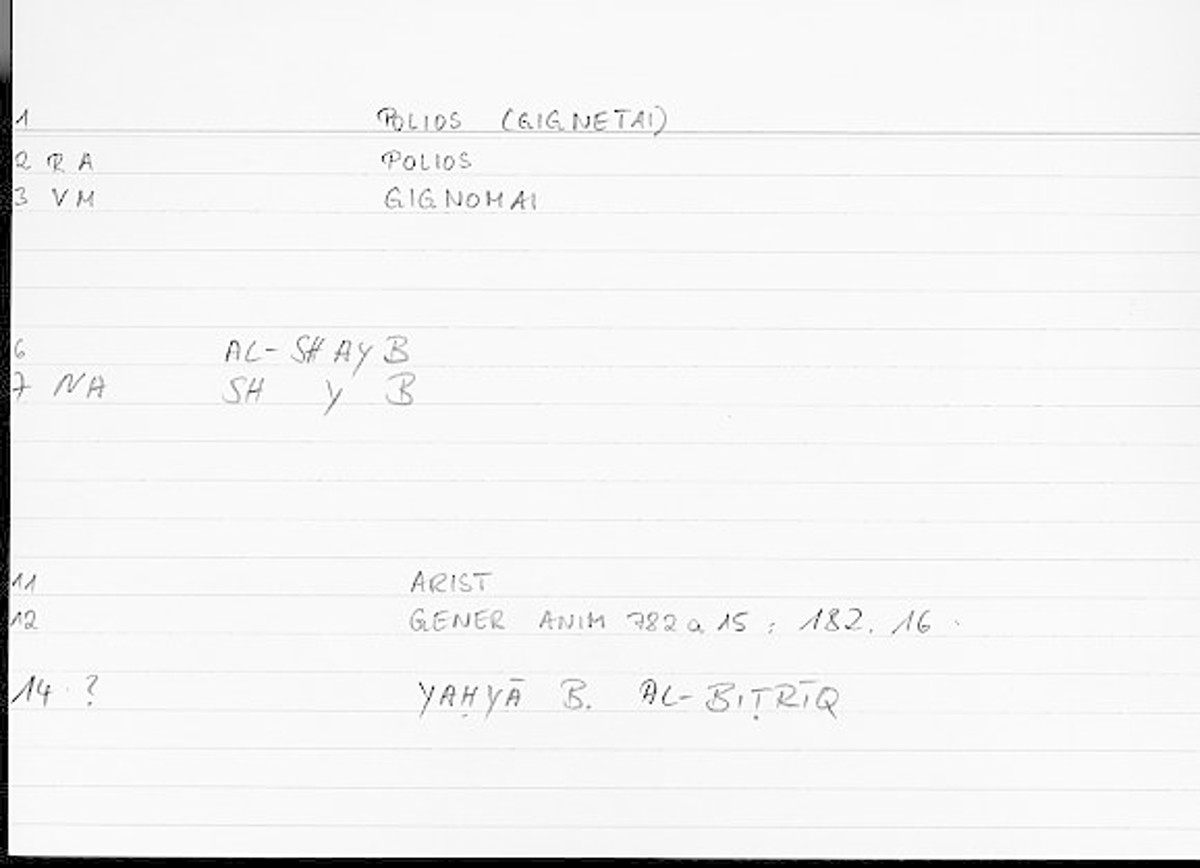 1 POLIOS (GIGNETAI)
2 RA POLIOS
3 VM GIGNOMAI
6 AL-SHAYB
7 NA SH Y B
11 ARIST
12 GENER ANIM 782 a 15 ; 182. 16.
14 ? YAḤYĀ B. AL-BIṬRĪQ